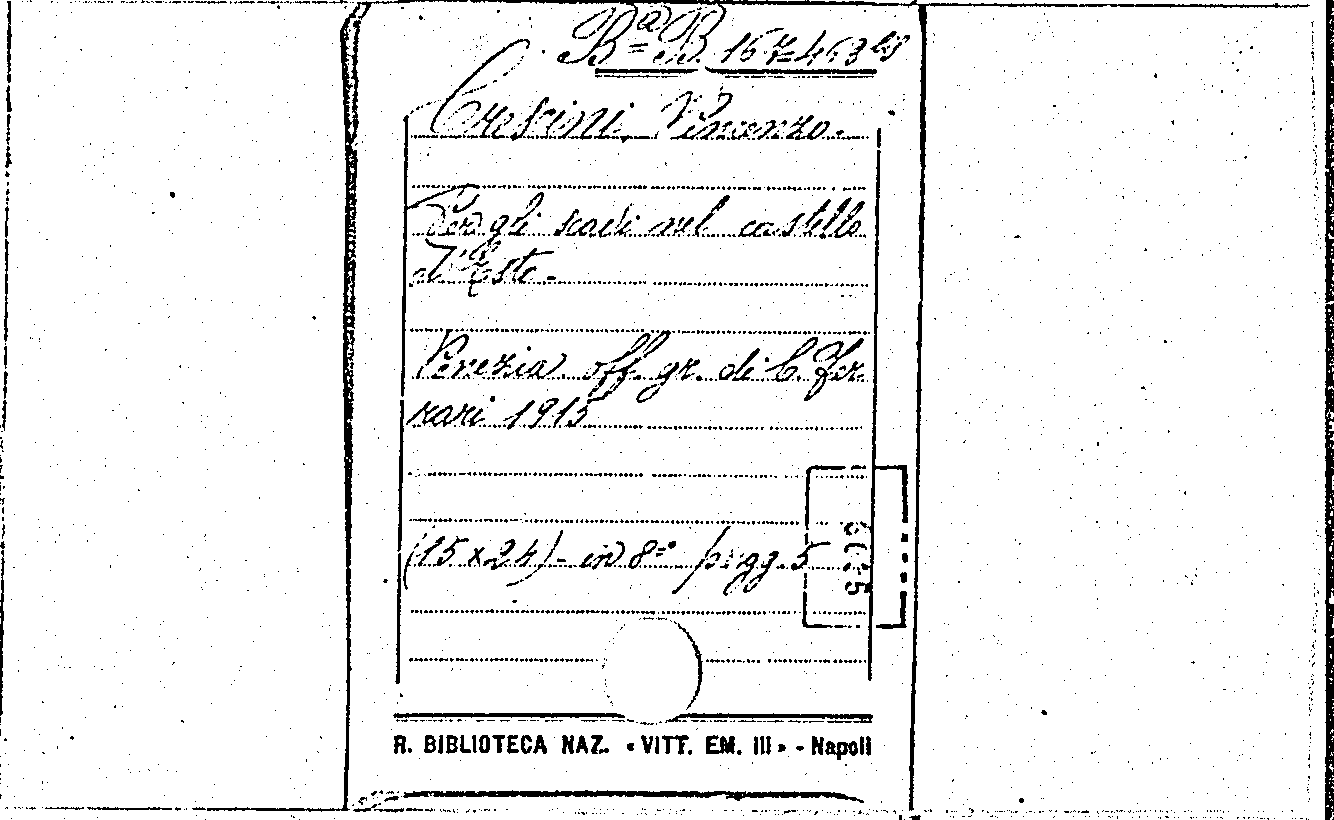 Bª B. 167-463
Crescini, Vincenzo.
Per gli scavi nel castello
d'Este.
Venezia off. gr. di C. Fer-
rari 1915
(15 x 24) - in 8º pagg. 5
R. BIBLIOTECA NAZ. « VITT. EM. III » - Napoli